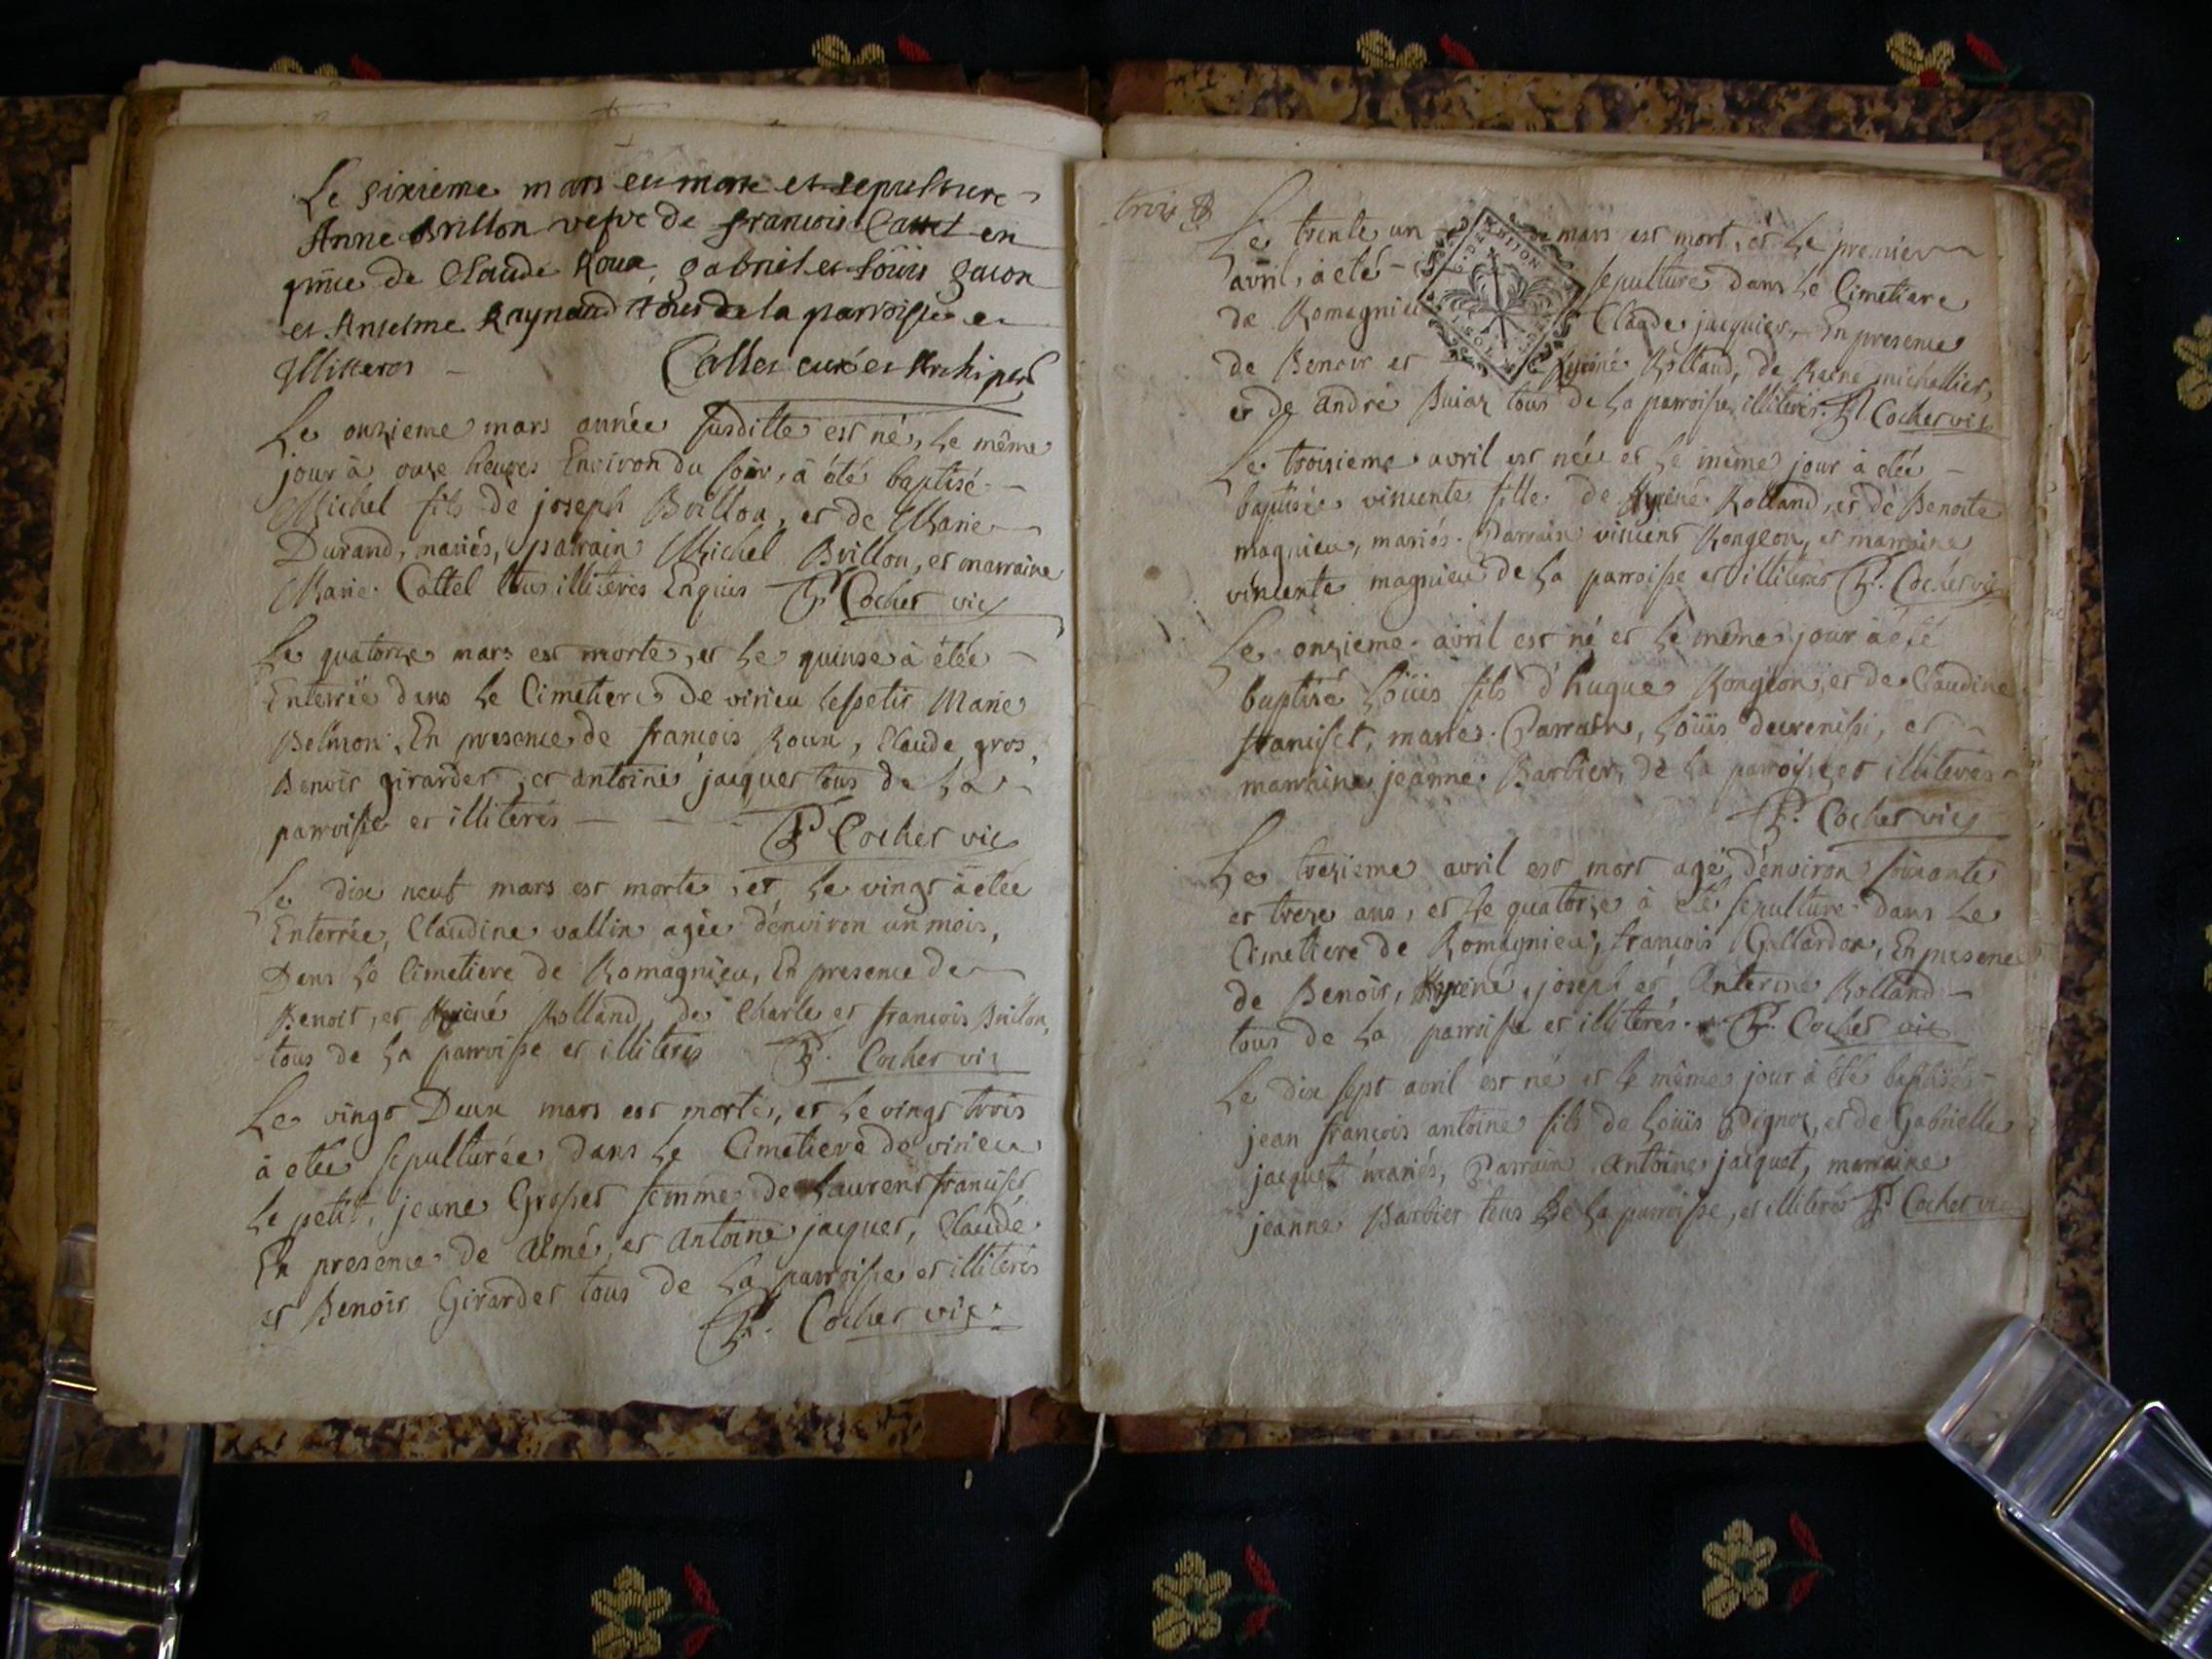 Le sixieme mars est morte et sepulture
Anne Brillon vefve de francois Cattel en
pnce de Claude Roux, gabriel et Loüis
et Anselme Raynaud tous de la parroisse et
illiteres Cattet curé et Archipr
Le onzieme mars année susditte est né, Le même
jour à onze heures Environ du soir, à été baptisé
Michel fils de joseph Brillon, et de Marie
Durand, mariés, parrain Michel Brillon, et marraine
Marie Cattel tous illiterés Enquis P. Cochet vic
Le quatorze mars est morte, et Le quinse à étée
Enterrée dans Le Cimetiere de virieu Le petit Marie
Belmon, En presence de francois Roux, Claude gros,
Benoit girardet, et antoine jacquet tous de La
parroisse et illiterés P. Cochet vic
Le dix neuf mars est morte, et Le vingt à étée
Enterrée, Claudine vallin agée d'environ un mois,
Dans Le Cimetiere de Romagnieu, En presence de
Benoit, et Kyriné Rolland, de Charle et francois Brillon,
tous de La parroisse et illiterés P. Cochet vic
Le vingt Deux mars est morte, et Le vingt trois
à etée sepulturée dans Le Cimetiere de virieu
Le petit, jeane Grosset femme de Laurent franciset,
En presence de Aimé, et Antoine jacquet, Claude
et Benoit Girardet tous de La parroisse et illiterés
P. Cochet vic
trois
Le trente un de mars est mort, et Le premier
avril, à eté sepulture dans Le Cimetiere
de Romagnieu Claude jacquier, En presence
de Benoit et Kyriné Rolland, de Reené michallier,
et de André Buiaz tous de La parroisse, illiterés P. Cochet vic
Le troisieme avril est née et Le même jour à etée
baptisée vincente fille de Kyriné Rolland, et de Benoite
magnieu, mariés. Parrain vincent Rongeon, et marraine
vincente magnieu de La parroisse et illiterés P. Cochet vic
Le onzieme avril est né et Le même jour à été
baptisé Loüis fils d'hugue Rongeon, et de Claudine
francisct, mariés. Parrain, Loüis, et
marraine jeanne Barbier, de La parroisse, et illiterés
P. Cochet vic
Le trezieme avril est mort agé d'environ soixante
et treze ans, et Le quatorze à eté sepulture dans Le
Cimetiere de Romagnieu, francois Gallardon, En presence
de Benoit, Kyriné, joseph et Anterme Rolland
tous de La parroisse et illiterés. P. Cochet vic
Le dix sept avril est né et Le même jour à été baptisé
jean francois antoine fils de Loüis Pignoz, et de Gabrielle
jacquet mariés, Parrain Antoine jacquet, marraine
jeanne Barbier tous de La parroisse, et illiterés P. Cochet vic